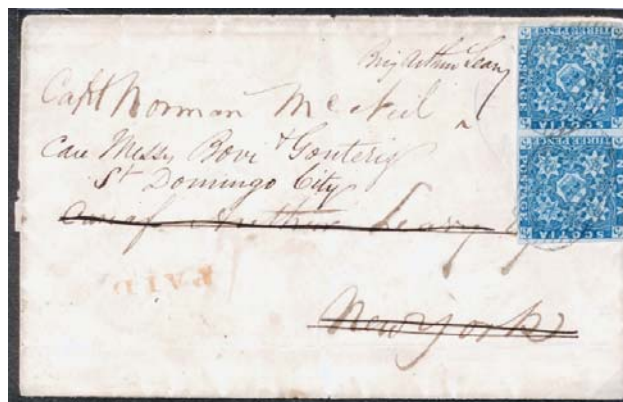 Brig Arthur Leary
Capt Norman McNeil
Care Messrs Bovi & Gonterig
St Domingo City
Care of Arthur Leary
New York
PAID
THREE PENCE
SCOTIA
THREE PENCE
SCOTIA